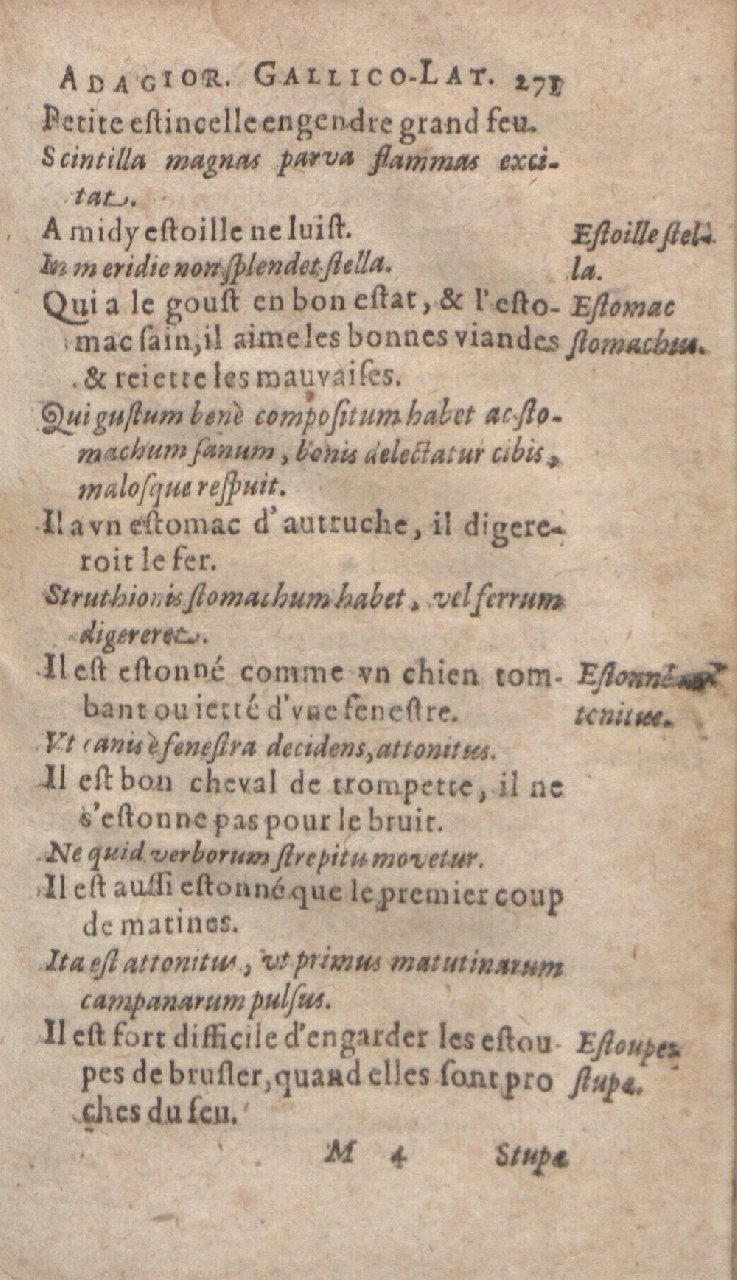 ADAGIOR. GALLICO-LAT. 271
Petite eſtincelle engendre grand feu.
Scintilla magnas parva flammas exci-
tat.
A midy eſtoille ne luiſt.
Eſtoille ſtel-
In meridie non ſplendet ſtella.
la.
Qui a le gouſt en bon eſtat, & l'eſto-
Eſtomac
mac ſain, il aime les bonnes viandes
ſtomachus.
& reiette les mauvaiſes.
Qui guſtum benè compoſitum habet ac ſto-
machum ſanum, bonis delectatur cibis,
maloſque reſpuit.
Il a vn eſtomac d'autruche, il digere-
roit le fer.
Struthionis ſtomachum habet, vel ferrum
digereret.
Il eſt eſtonné comme vn chien tom-
Eſtonné
bant ou ietté d'vne feneſtre.
tonitus.
Vt canis è feneſtra decidens, attonitus.
Il eſt bon cheval de trompette, il ne
s'eſtonne pas pour le bruit.
Ne quid verborum ſtrepitu movetur.
Il eſt auſſi eſtonné que le premier coup
de matines.
Ita eſt attonitus, vt primus matutinarum
campanarum pulſus.
Il eſt fort difficile d'engarder les eſtou-
Eſtoupes
pes de bruſler, quand elles ſont pro
ſtupæ.
ches du feu.
M 4 Stupæ